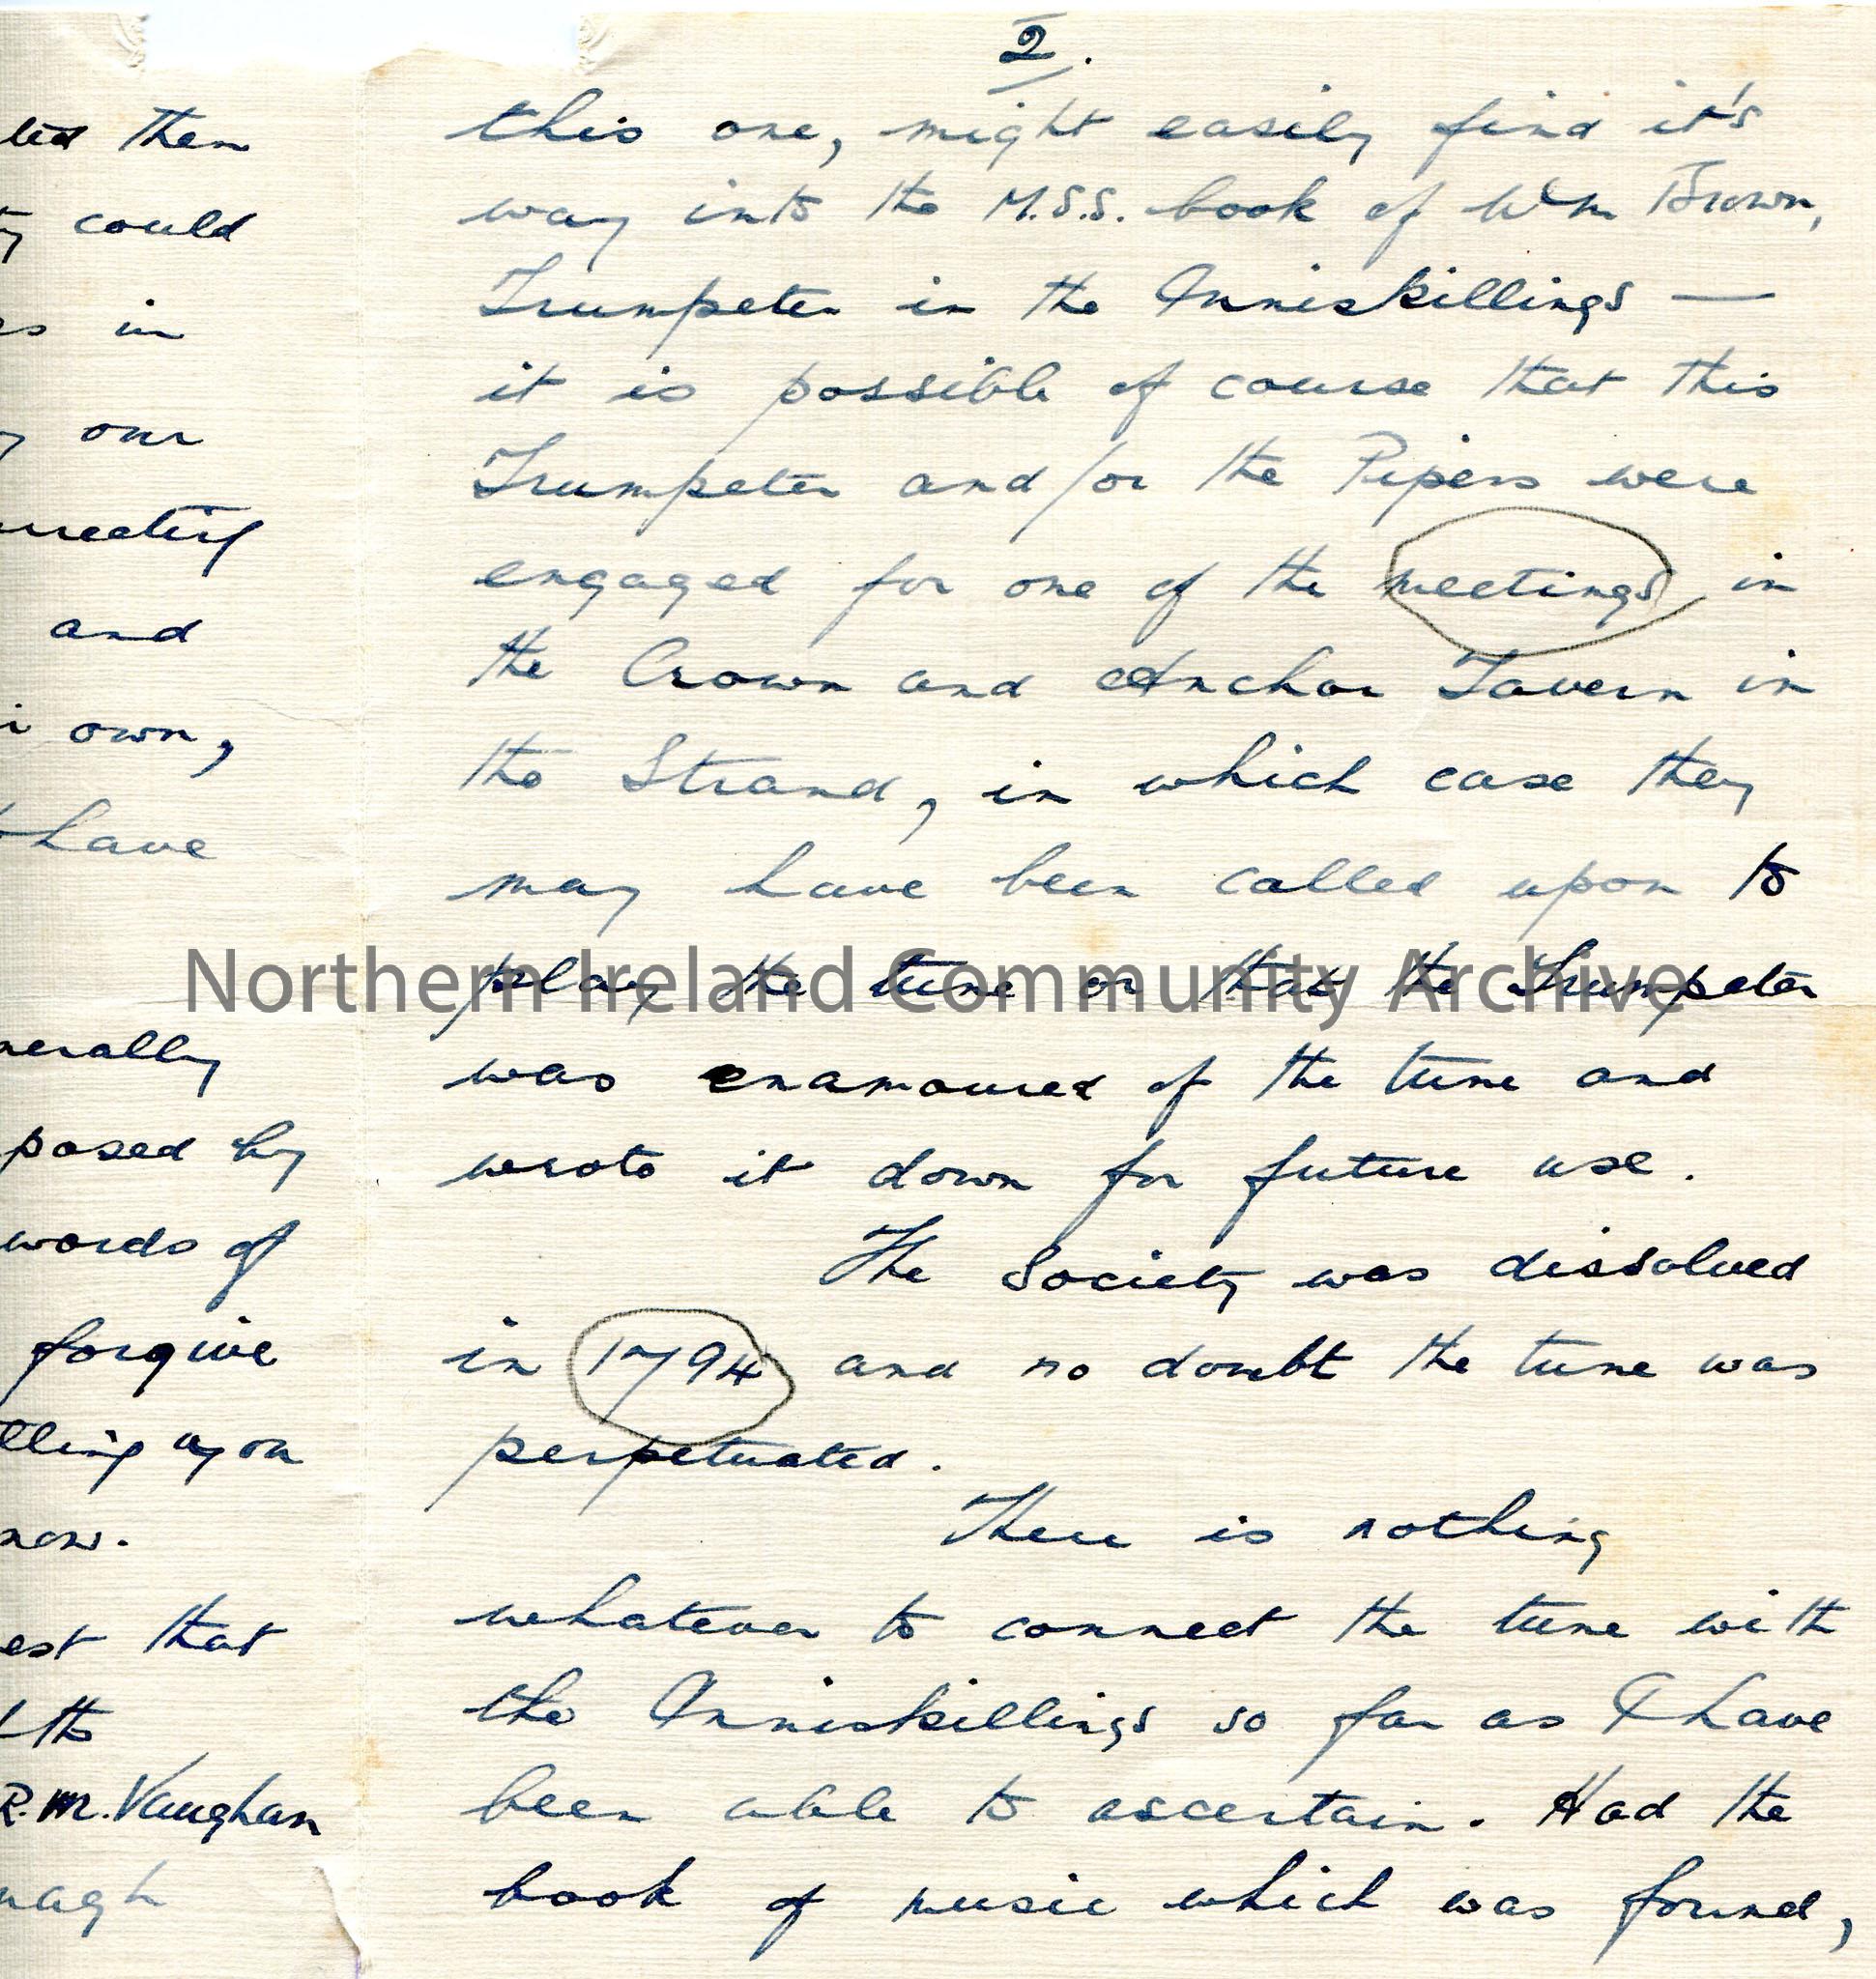 led then
could
in
our
and
own,
have
nerally
posed by
words of
forgive
lling upon
now.
est that
the
R.M. Vaughan
nagh
2.
this one, might easily find it's
way into the M.S.S. book of Wm Brown,
Trumpeter in the Inniskillings —
it is possible of course that this
Trumpeter and/or the Pipers were
engaged for one of the meetings, in
the Crown and Anchor Tavern in
the Strand, in which case they
may have been called upon to
play the tune or that the Trumpeter
was enamoured of the tune and
wrote it down for future use.
The Society was dissolved
in 1794 and no doubt the tune was
perpetuated.
There is nothing
whatever to connect the tune with
the Inniskillings so far as I have
been able to ascertain. Had the
book of music which was found,
Northern Ireland Community Archive